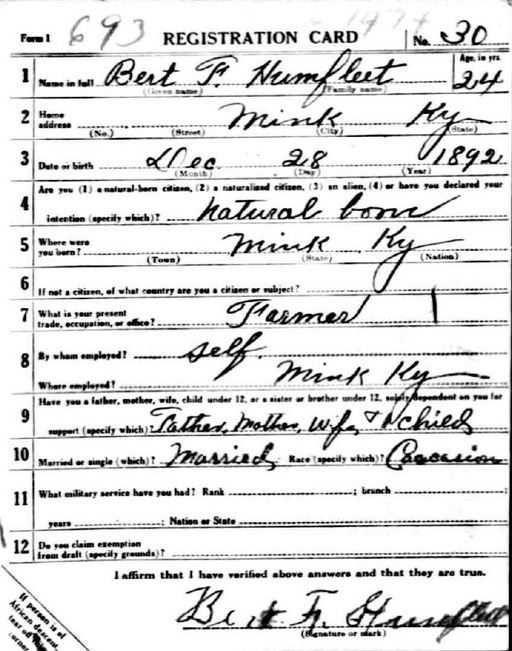 Form 1 693 REGISTRATION CARD No. 30
1 Name in full Bert F. Humfleet Age, in yrs. 24
(Given name) (Family name)
2 Home address Mink Ky
(No.) (Street) (City) (State)
3 Date of birth Dec 28 1892
(Month) (Day) (Year)
4 Are you (1) a natural-born citizen, (2) a naturalized citizen, (3) an alien, (4) or have you declared your
intention (specify which)? natural born
5 Where were you born? Mink Ky
(Town) (State) (Nation)
6 If not a citizen, of what country are you a citizen or subject?
7 What is your present trade, occupation, or office? Farmer
8 By whom employed? self.
Where employed? Mink Ky
9 Have you a father, mother, wife, child under 12, or a sister or brother under 12, solely dependent on you for
support (specify which)? Father, Mother, Wife, + child
10 Married or single (which)? Married Race (specify which)? Caucasion
11 What military service have you had? Rank ; branch ;
years ; Nation or State
12 Do you claim exemption from draft (specify grounds)?
I affirm that I have verified above answers and that they are true.
Bert F. Humfleet
(Signature or mark)
If person is of
African descent,
tear off
corner